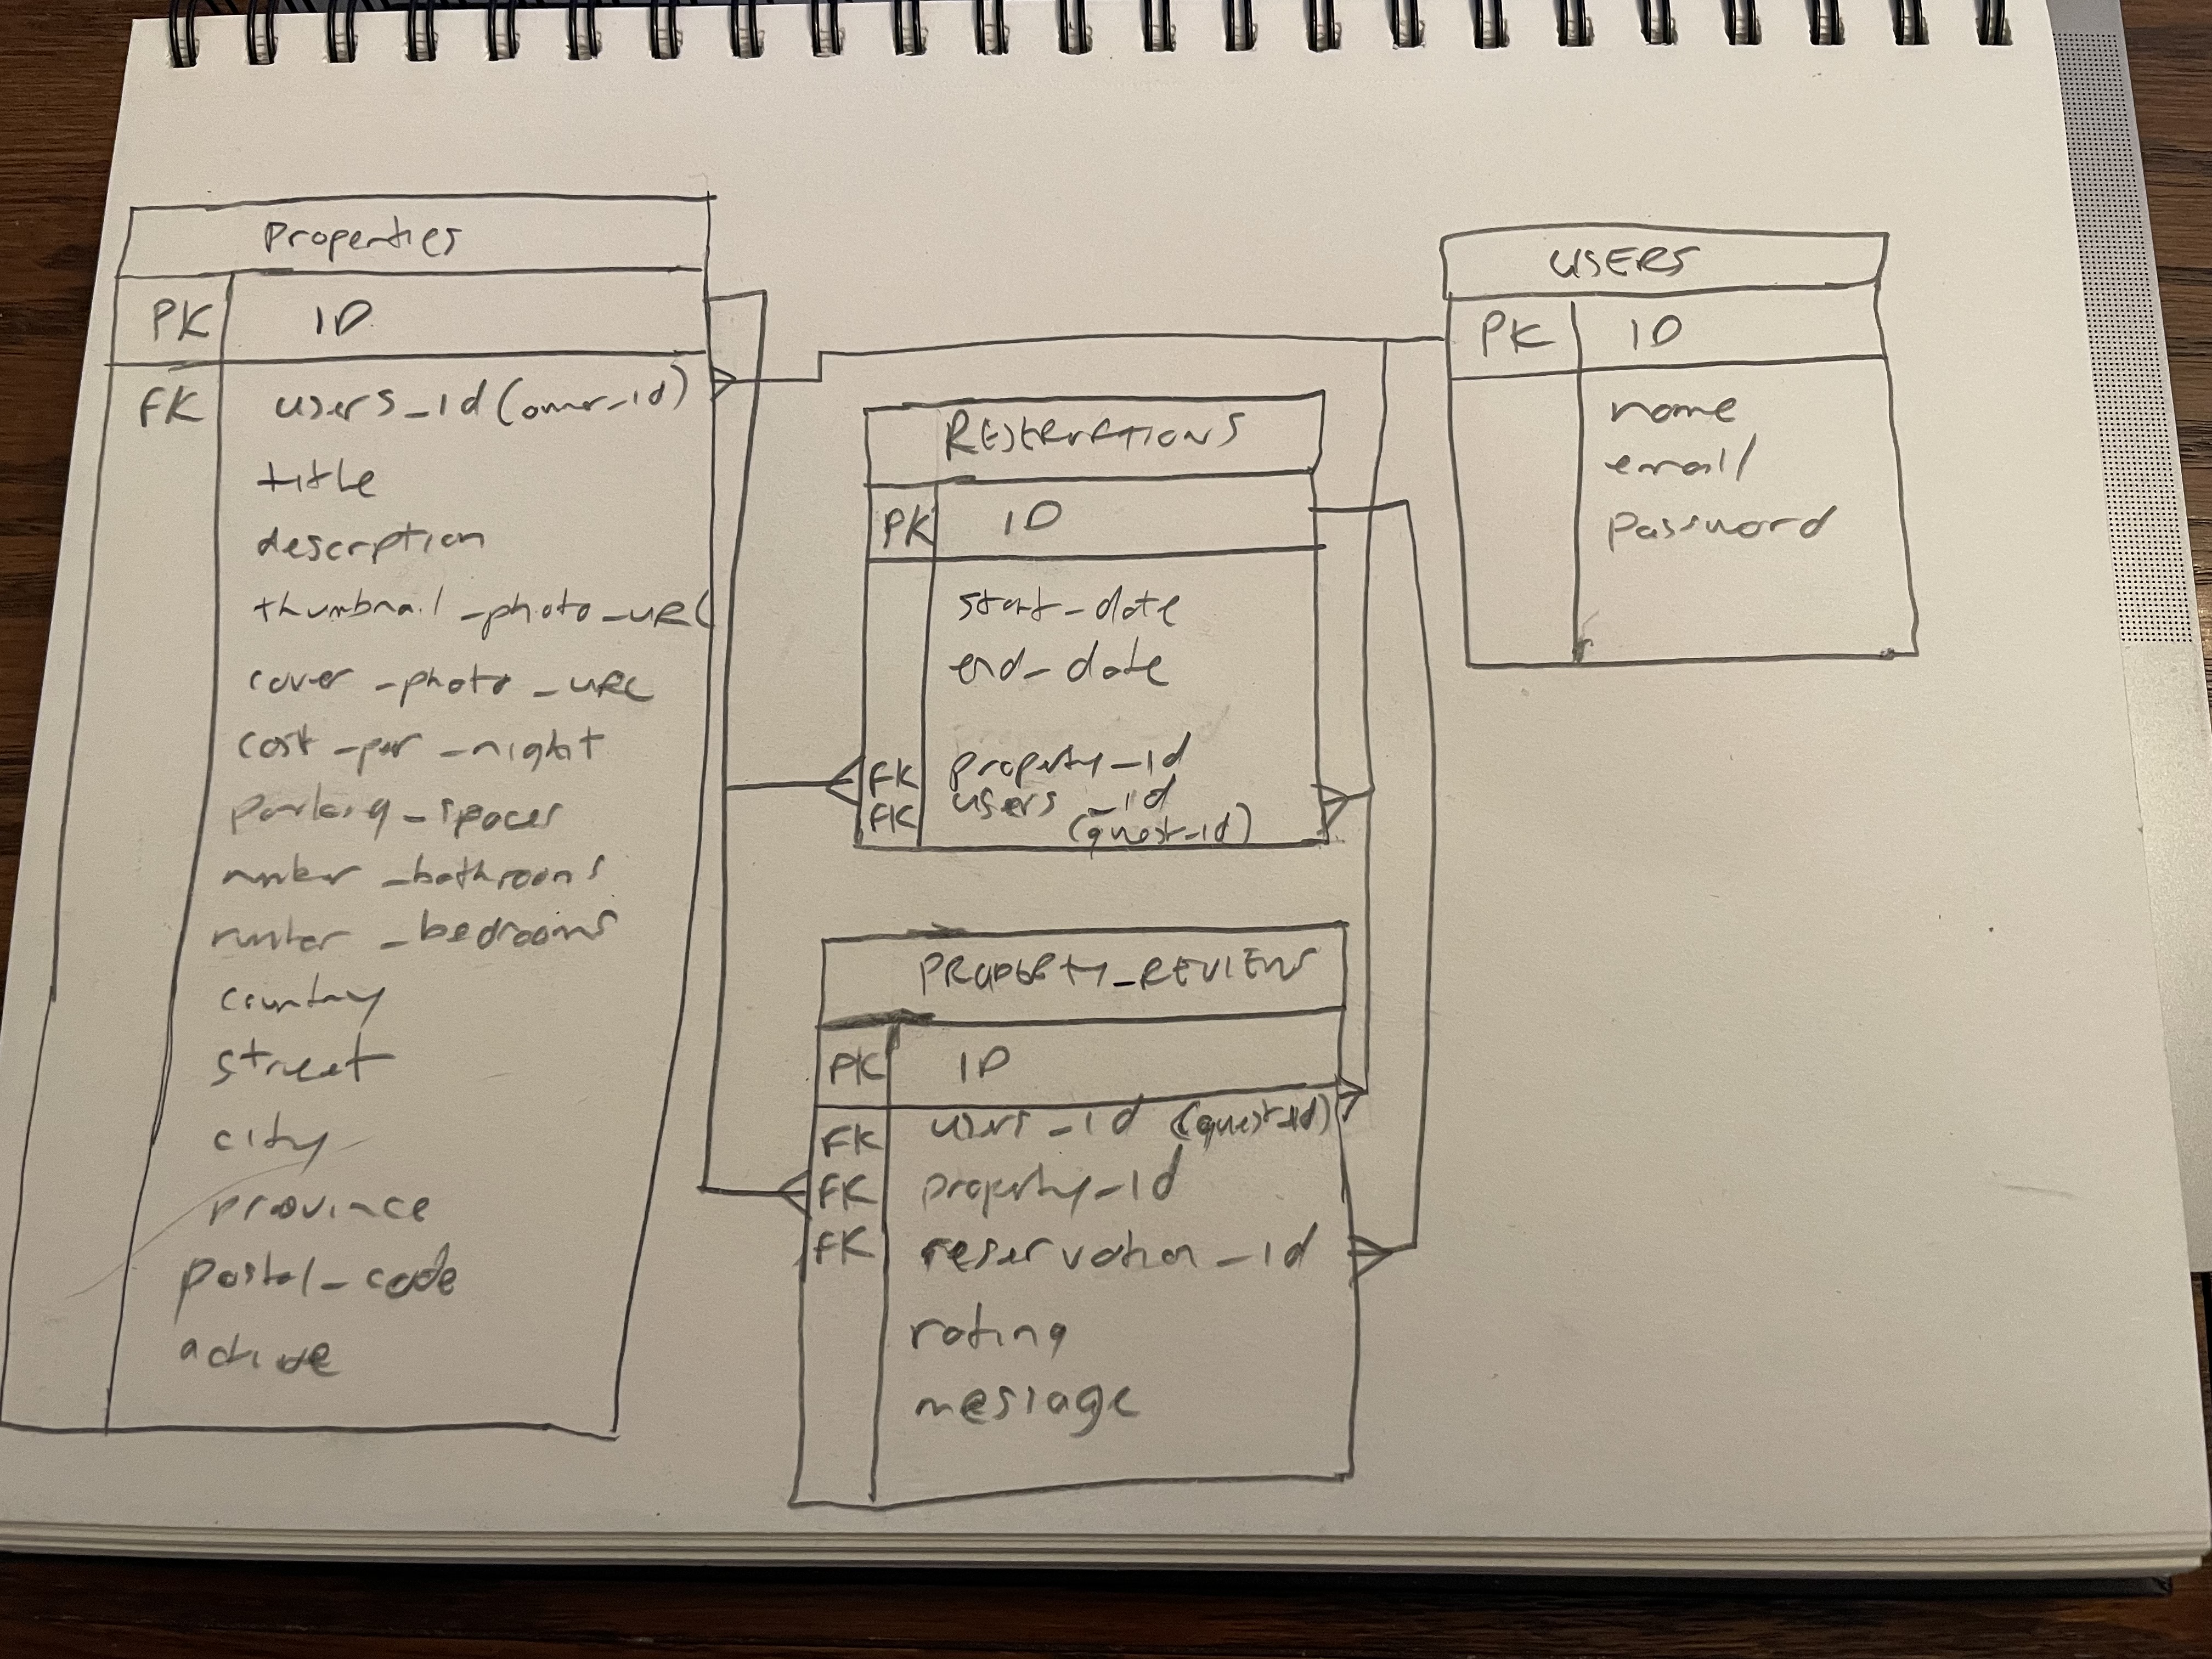 Properties
PK ID
FK users_id (owner_id)
title
description
thumbnail_photo_URL
cover_photo_URL
cost_per_night
Parking_spaces
number_bathrooms
number_bedrooms
country
street
city
province
postal_code
active
RESERVATIONS
PK ID
start_date
end_date
FK property_id
FK users_id
(guest_id)
PROPERTY_REVIEWS
PK ID
FK users_id (guest_id)
FK property_id
FK reservation_id
rating
message
USERS
PK ID
name
email
Password